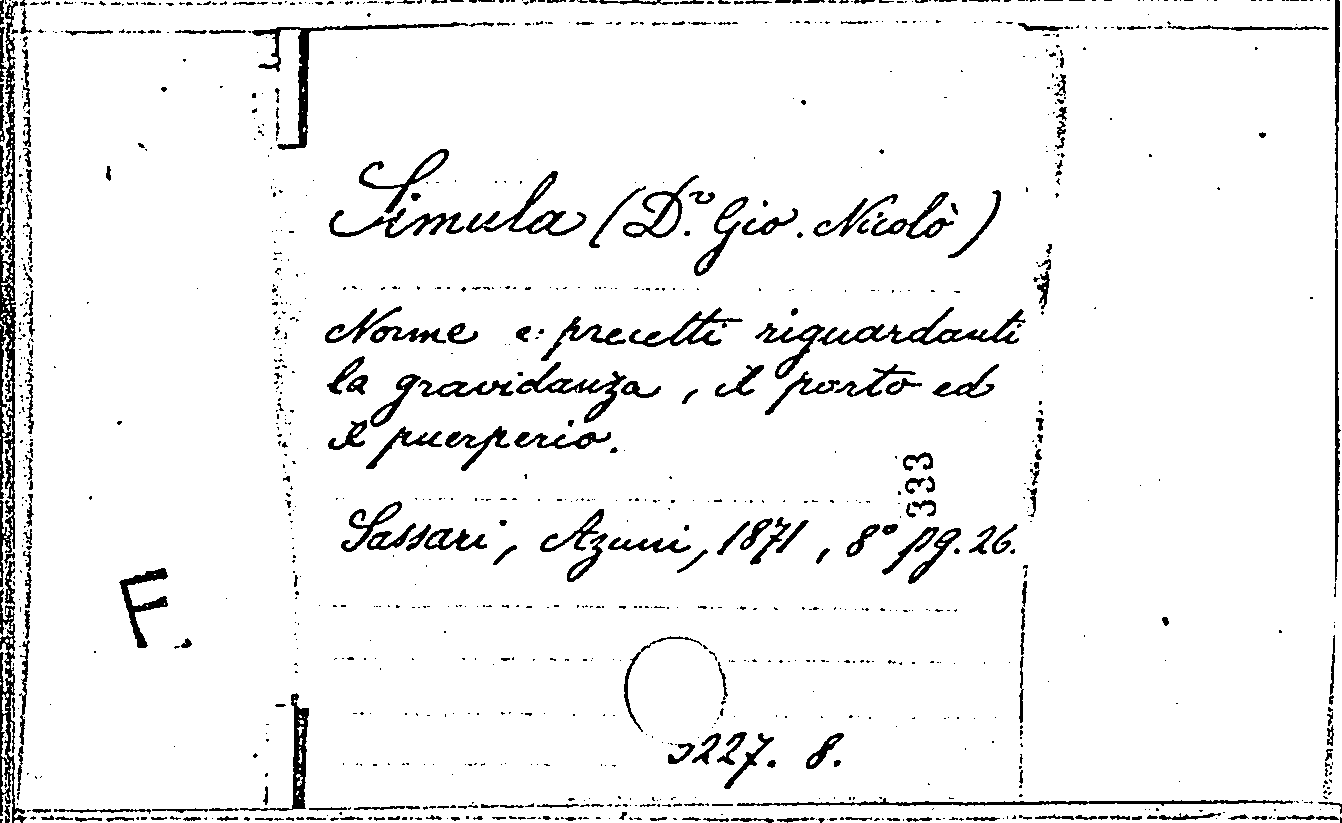 Simula (Dr. Gio. Nicolò)
Norme e precetti riguardanti
la gravidanza, il parto ed
il puerperio.
333
Sassari, Azuni, 1871, 8° pg. 26.
F.
227. 8.